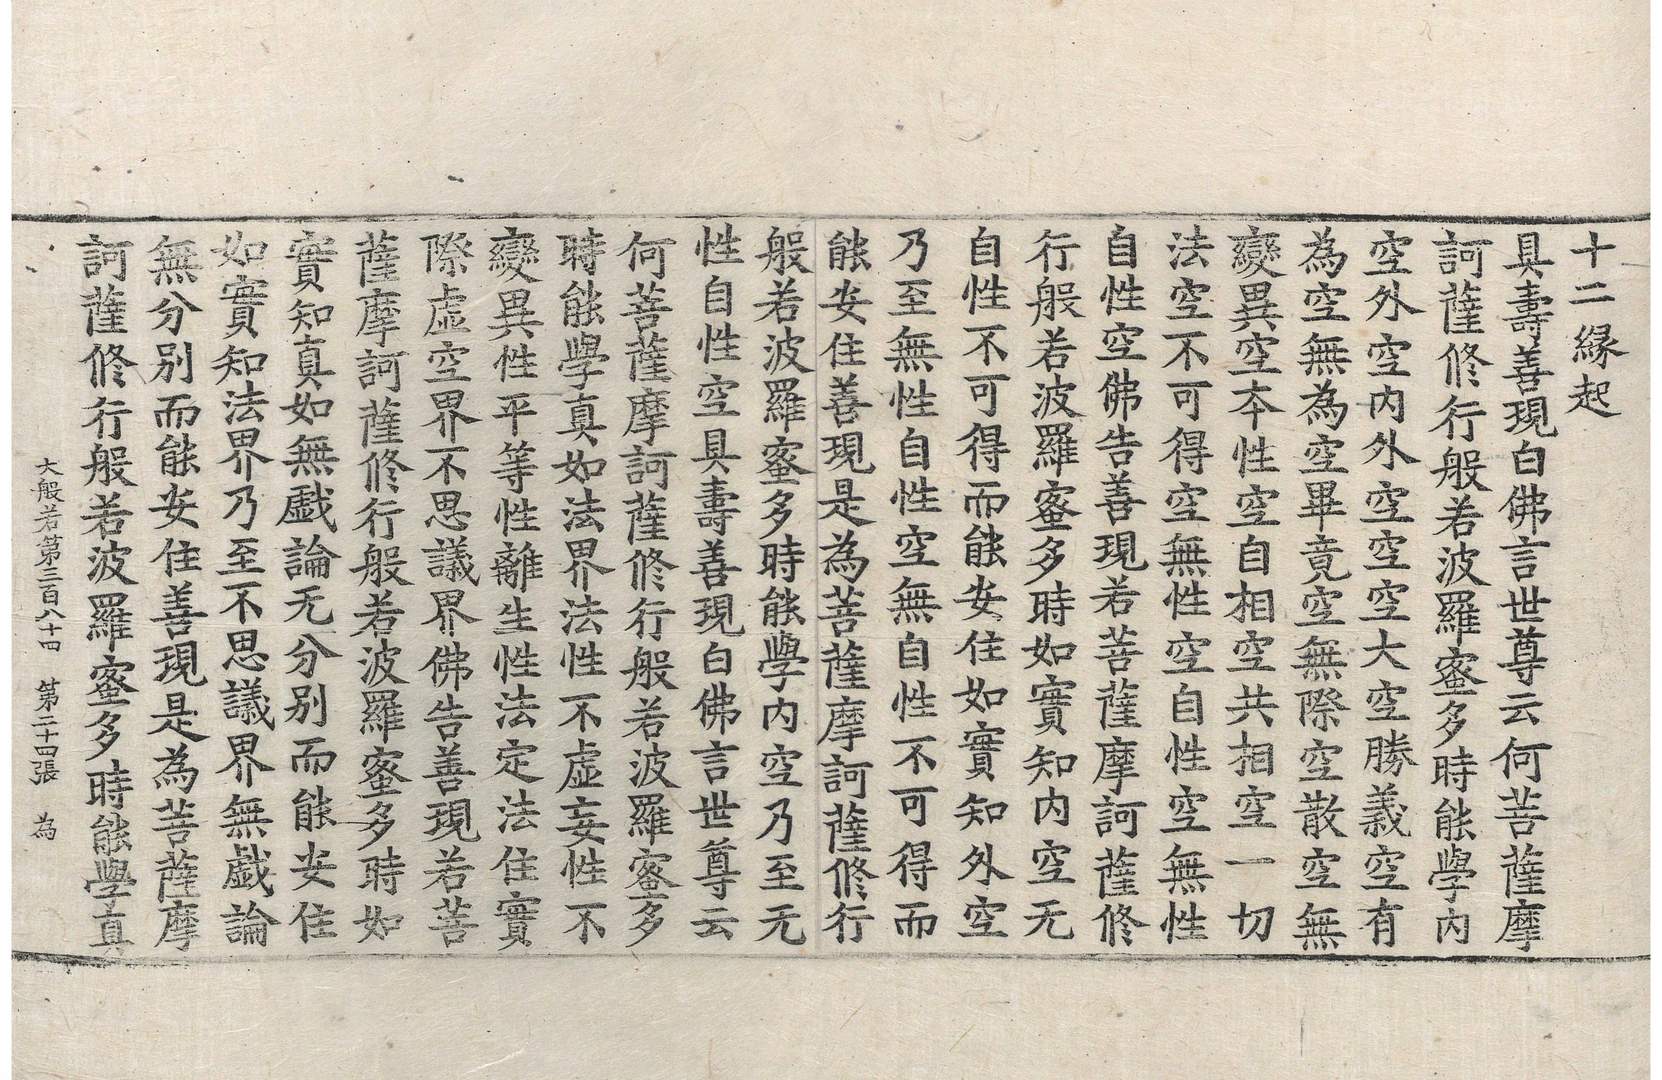 十二縁起
具壽善現白佛言世尊云何菩薩摩
訶薩修行般若波羅蜜多時能學內
空外空內外空空空大空勝義空有
為空無為空畢竟空無際空散空無
變異空本性空自相空共相空一切
法空不可得空無性空自性空無性
自性空佛告善現若菩薩摩訶薩修
行般若波羅蜜多時如實知內空无
自性不可得而能安住如實知外空
乃至無性自性空無自性不可得而
能安住善現是為菩薩摩訶薩修行
般若波羅蜜多時能學內空乃至无
性自性空具壽善現白佛言世尊云
何菩薩摩訶薩修行般若波羅蜜多
時能學真如法界法性不虛妄性不
變異性平等性離生性法定法住實
際虛空界不思議界佛告善現若菩
薩摩訶薩修行般若波羅蜜多時如
實知真如無戱論无分別而能安住
如實知法界乃至不思議界無戱論
無分別而能安住善現是為菩薩摩
訶薩修行般若波羅蜜多時能學真
大般若第三百八十四 第二十四張 為